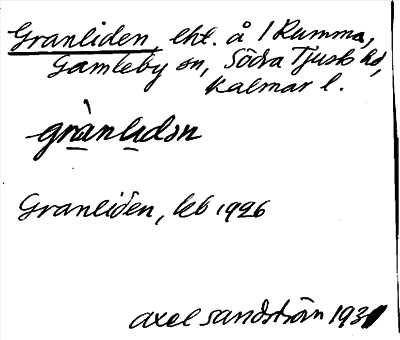 Granliden, lht. å 1 Rumma,
Gamleby sn, Södra Tjusts hd,
Kalmar l.
grànlidən
Granliden, kb 1926
Axel Sandström 1931